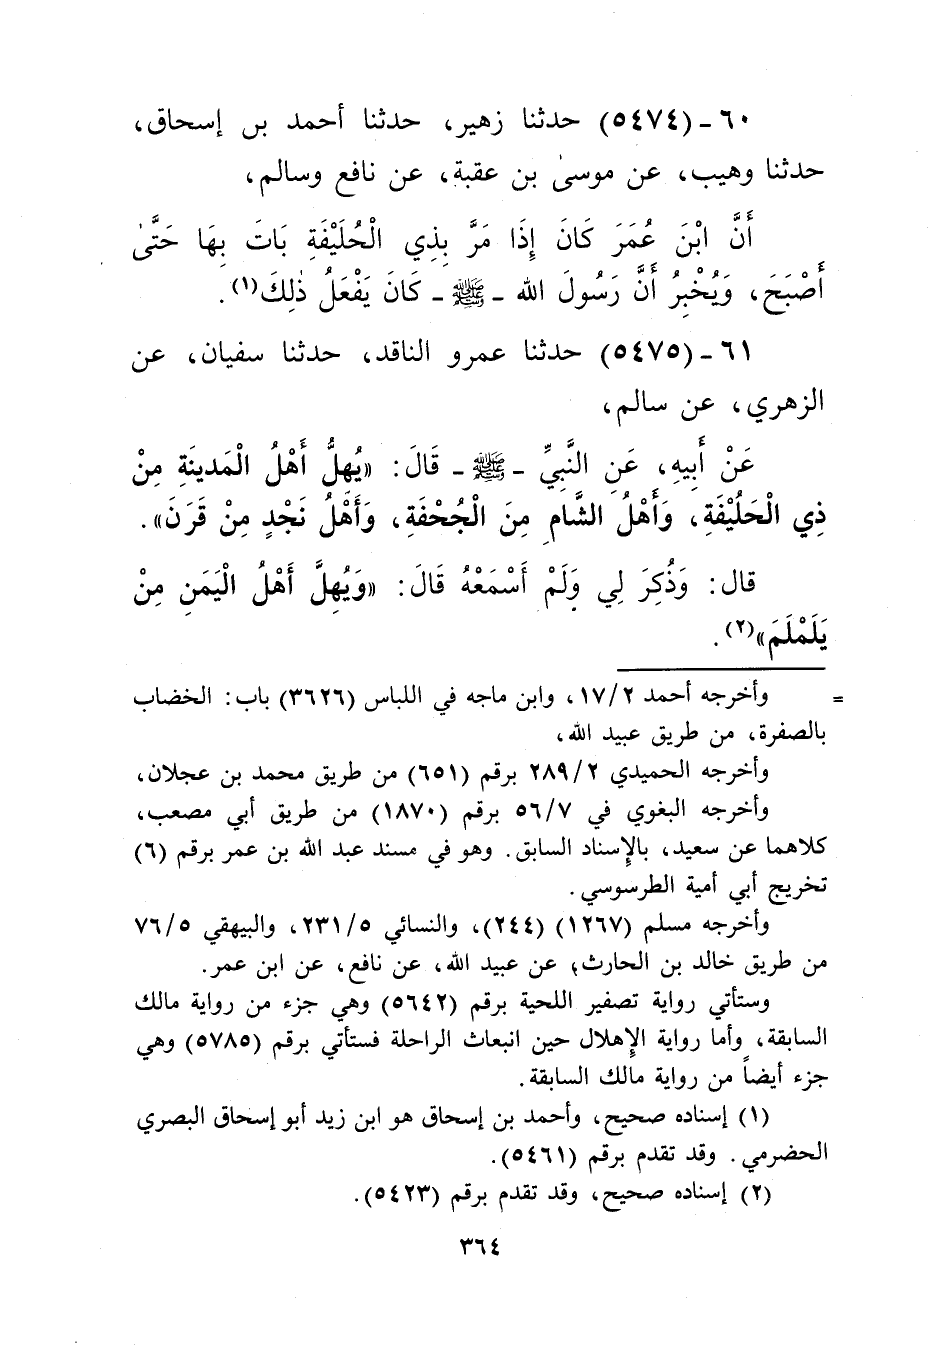 ٦٠ - (٥٤٧٤) حدثنا زهير، حدثنا أحمد بن إسحاق،
حدثنا وهيب، عن موسىٰ بن عقبة، عن نافع وسالم،
أَنَّ ابْنَ عُمَرَ كَانَ إِذَا مَرَّ بِذِي الْحُلَيْفَةِ بَاتَ بِهَا حَتَّىٰ
أَصْبَحَ، وَيُخْبِرُ أَنَّ رَسُولَ الله - ﷺ - كَانَ يَفْعَلُ ذٰلِكَ(١).
٦١ - (٥٤٧٥) حدثنا عمرو الناقد، حدثنا سفيان، عن
الزهري، عن سالم،
عَنْ أَبِيهِ، عَنِ النَّبِيِّ - ﷺ - قَالَ: «يُهِلُّ أَهْلُ الْمَدينَةِ مِنْ
ذِي الْحَلُيْفَةِ، وَأَهْلُ الشَّامِ مِنَ الْجُحْفَةِ، وَأَهْلُ نَجْدٍ مِنْ قَرَنَ».
قال: وَذُكِرَ لِي وَلَمْ أَسْمَعْهُ قَالَ: «وَيُهِلَّ أَهْلُ الْيَمَنِ مِنْ
يَلَمْلَمَ»(٢).
= وأخرجه أحمد ١٧/٢، وابن ماجه في اللباس (٣٦٢٦) باب: الخضاب
بالصفرة، من طريق عبيد الله،
وأخرجه الحميدي ٢٨٩/٢ برقم (٦٥١) من طريق محمد بن عجلان،
وأخرجه البغوي في ٥٦/٧ برقم (١٨٧٠) من طريق أبي مصعب،
كلاهما عن سعيد، بالإسناد السابق. وهو في مسند عبد الله بن عمر برقم (٦)
تخريج أبي أمية الطرسوسي.
وأخرجه مسلم (١٢٦٧) (٢٤٤)، والنسائي ٢٣١/٥، والبيهقي ٧٦/٥
من طريق خالد بن الحارث، عن عبيد الله، عن نافع، عن ابن عمر.
وستأتي رواية تصفير اللحية برقم (٥٦٤٢) وهي جزء من رواية مالك
السابقة، وأما رواية الإهلال حين انبعاث الراحلة فستأتي برقم (٥٧٨٥) وهي
جزء أيضاً من رواية مالك السابقة.
(١) إسناده صحيح، وأحمد بن إسحاق هو ابن زيد أبو إسحاق البصري
الحضرمي. وقد تقدم برقم (٥٤٦١).
(٢) إسناده صحيح، وقد تقدم برقم (٥٤٢٣).
٣٦٤